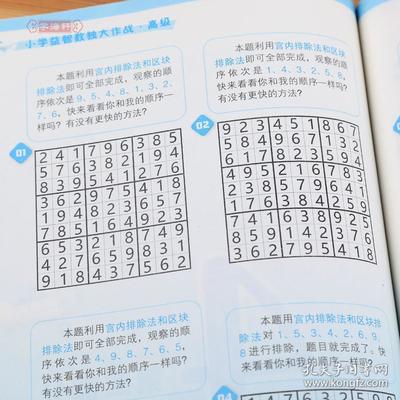 学海轩
小学益智数独大作战·高级
本题利用宫内排除法和区块
排除法即可全部完成，观察的顺
序依次是 9、5、4、8、1、3、2、
7、6，快来看看你和我的顺序一
样吗？有没有更快的方法？
01
2 4 1 7 9 6 3 8 5
5 7 6 3 8 2 1 9 4
8 3 9 5 4 1 2 7 6
3 6 2 9 7 5 4 1 8
1 9 4 8 2 3 6 5 7
7 8 5 1 6 4 9 2 3
6 5 3 2 1 8 7 4 9
4 2 7 6 5 9 8 3 1
9 1 8 4 3 7 5 6 2
本题利用宫内排除法和区块
排除法即可全部完成，观察的顺
序依次是 1、4、3、2、5、8，
快来看看你和我的顺序一样吗？
有没有更快的方法？
02
9 2 3 4 5 1 8 6 7
本题利用宫内排除法和区块
排除法即可全部完成，观察的顺
序依次是 4、9、8、7、6、5，
快来看看你和我的顺序一样吗？
有没有更快的方法？
本题利用宫内排除法和区块排
除法对 1、5、3、4、2、6、9、
8 进行排除，题目就完成了。快
来看看你和我的顺序一样吗？
04
孔夫子旧书网
www.kongfz.com